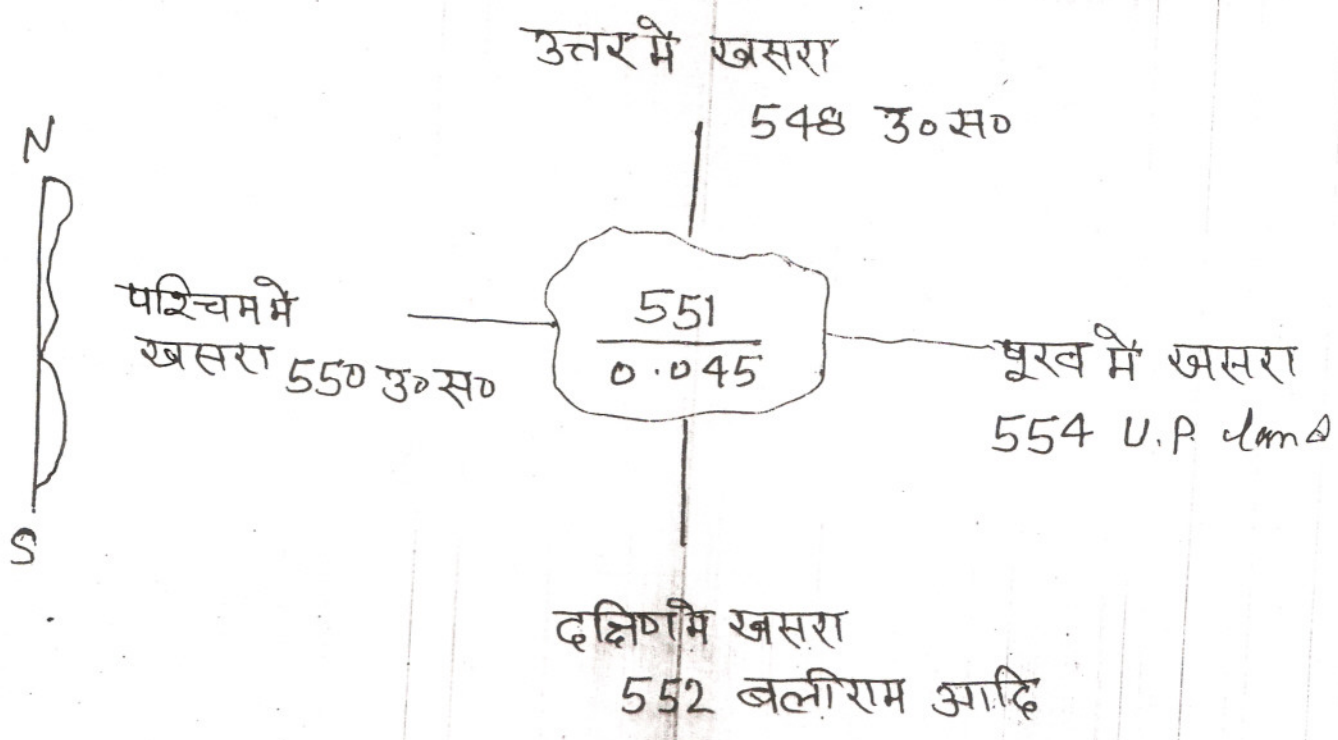 उत्तर में खसरा
548 उ०स०
N
पश्चिम में
खसरा 550 उ०स०
551
0.045
पूरब में खसरा
554 U.P. Land
S
दक्षिण में खसरा
552 बलीराम आदि